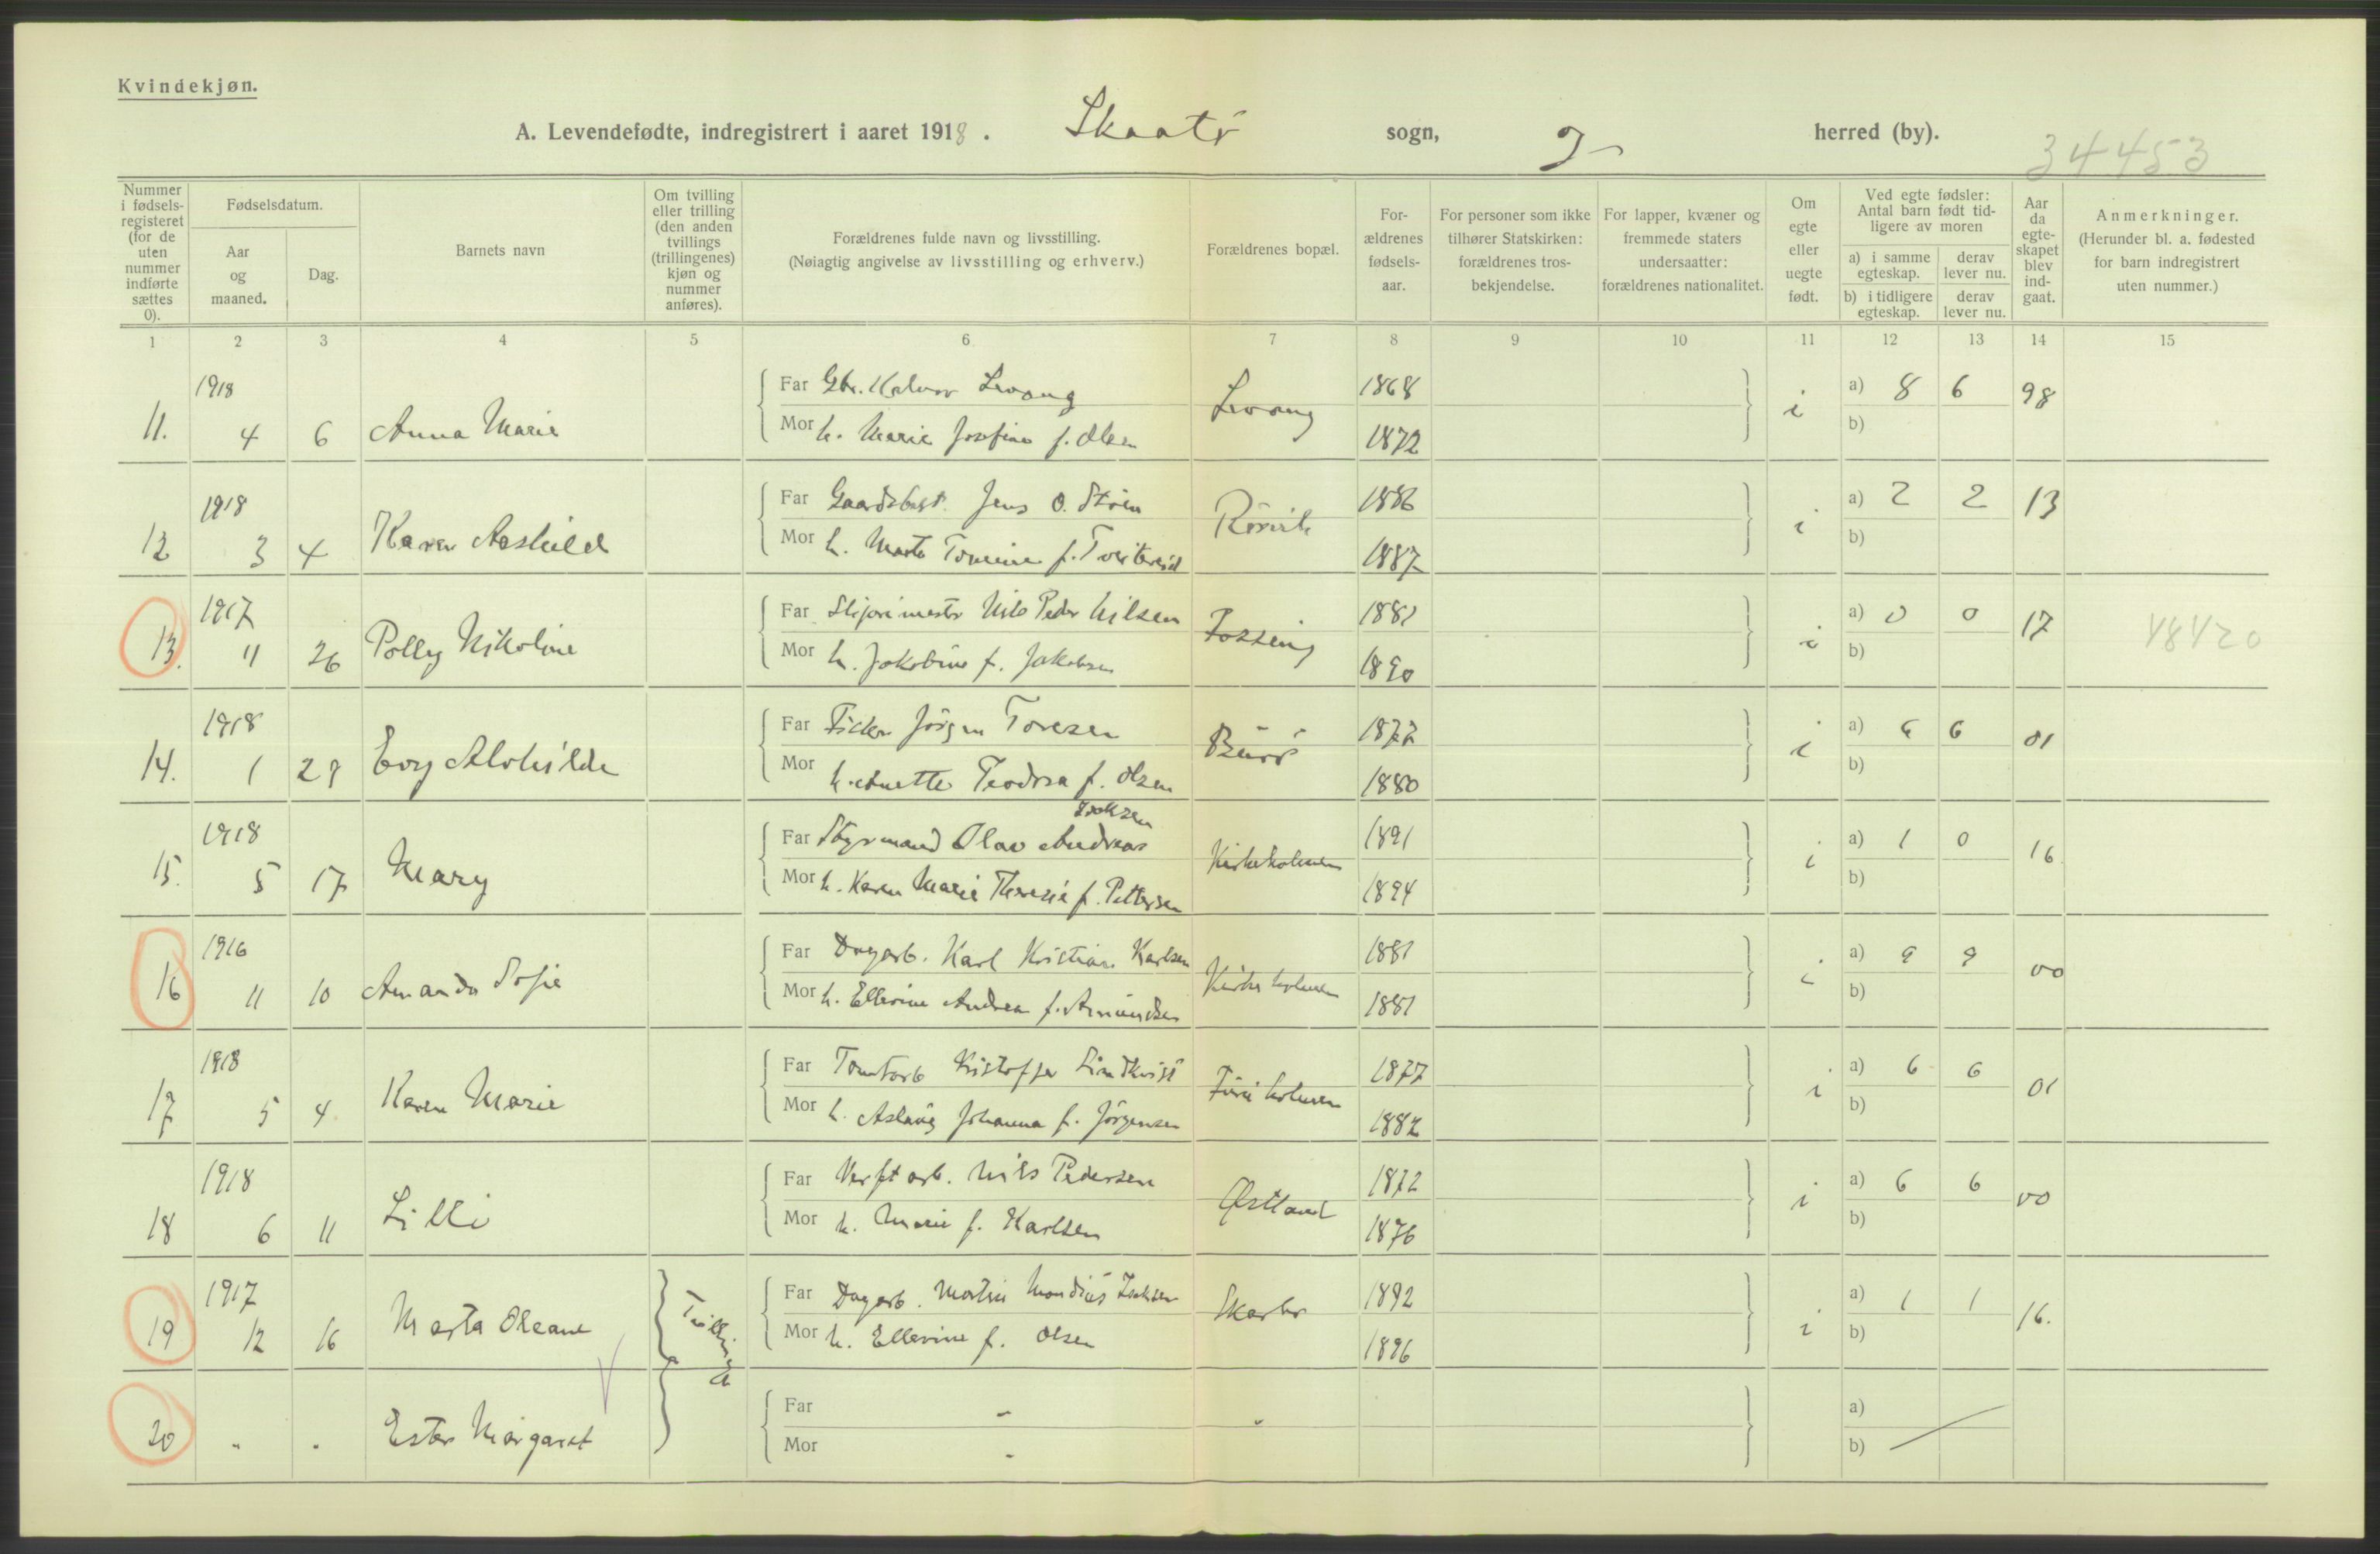 Kvindekjøn.
A. Levendefødte, indregistrert i aaret 1918. Skaatö sogn, herred (by).
34453
Nummer i fødsels-registeret (for de uten nummer indførte sættes 0).
Fødselsdatum.
Aar og maaned.
Dag.
Barnets navn
Om tvilling eller trilling (den anden tvillings (trillingenes) kjøn og nummer anføres).
Forældrenes fulde navn og livsstilling.
(Nøiagtig angivelse av livsstilling og erhverv.)
Forældrenes bopæl.
For-ældrenes fødsels-aar.
For personer som ikke tilhører Statskirken: forældrenes tros-bekjendelse.
For lapper, kvæner og fremmede staters undersaatter: forældrenes nationalitet.
Om egte eller uegte født.
Ved egte fødsler: Antal barn født tid-ligere av moren
a) i samme egteskap.
derav lever nu.
b) i tidligere egteskap.
derav lever nu.
Aar da egte-skapet blev ind-gaat.
Anmerkninger.
(Herunder bl. a. fødested for barn indregistrert uten nummer.)
1 2 3 4 5 6 7 8 9 10 11 12 13 14 15
1918
11. 4 6 Anna Marie
Far Gbr. Halvor Levang
Mor h. Marie Josefine f. Olsen
Levang 1868 1872 i a) 8 6 98
b)
1918
12 3 4 Karen Aashild
Far Gaardbest. Jens O.
Mor h. Marte Tomine f.
Rörvik 1886 1887 i a) 2 2 13
b)
1917
13. 11 26 Polly Nikoline
Far Nils Peder Nilsen
Mor h. Jakobine f. Jakobsen
Fossing 1881 1890 i a) 0 0 17 48420
b)
1918
14. 1 29 Evy Alvhilde
Far Fisker Jörgen Toresen
Mor h. Anette Teodora f. Olsen
1877 1880 i a) 6 6 01
b)
1918
15. 5 17 Mary
Isaksen
Far Styrmand Olav Andreas
Mor h. Karen Marie Theresie f. Pettersen
Kirkeholmen 1891 1894 i a) 1 0 16
b)
1916
16 11 10 Amanda Sofie
Far Dagarb. Karl Kristian Karlsen
Mor h. Ellevine Andrea f. Amundsen
Kirkeholmen 1881 1881 i a) 9 9 00
b)
1918
17 5 4 Karen Marie
Far Tomtarb Kristoffer Lindkvist
Mor h. Aslaug Johanna f. Jörgensen
Furuholmen 1877 1882 i a) 6 6 01
b)
1918
18 6 11 Lilli
Far Verft arb. Nils Pedersen
Mor h. Marie f. Karlsen
Østland 1872 1876 i a) 6 6 00
b)
1917
19 12 16 Marta Oleane
Tvillinger
Far Dagarb. Martin Mandius Isaksen
Mor h. Ellevine f. Olsen
Skaatö 1892 1896 i a) 1 1 16.
b)
20 " " Ester Margaret
Far "
Mor "
"
a)
b)